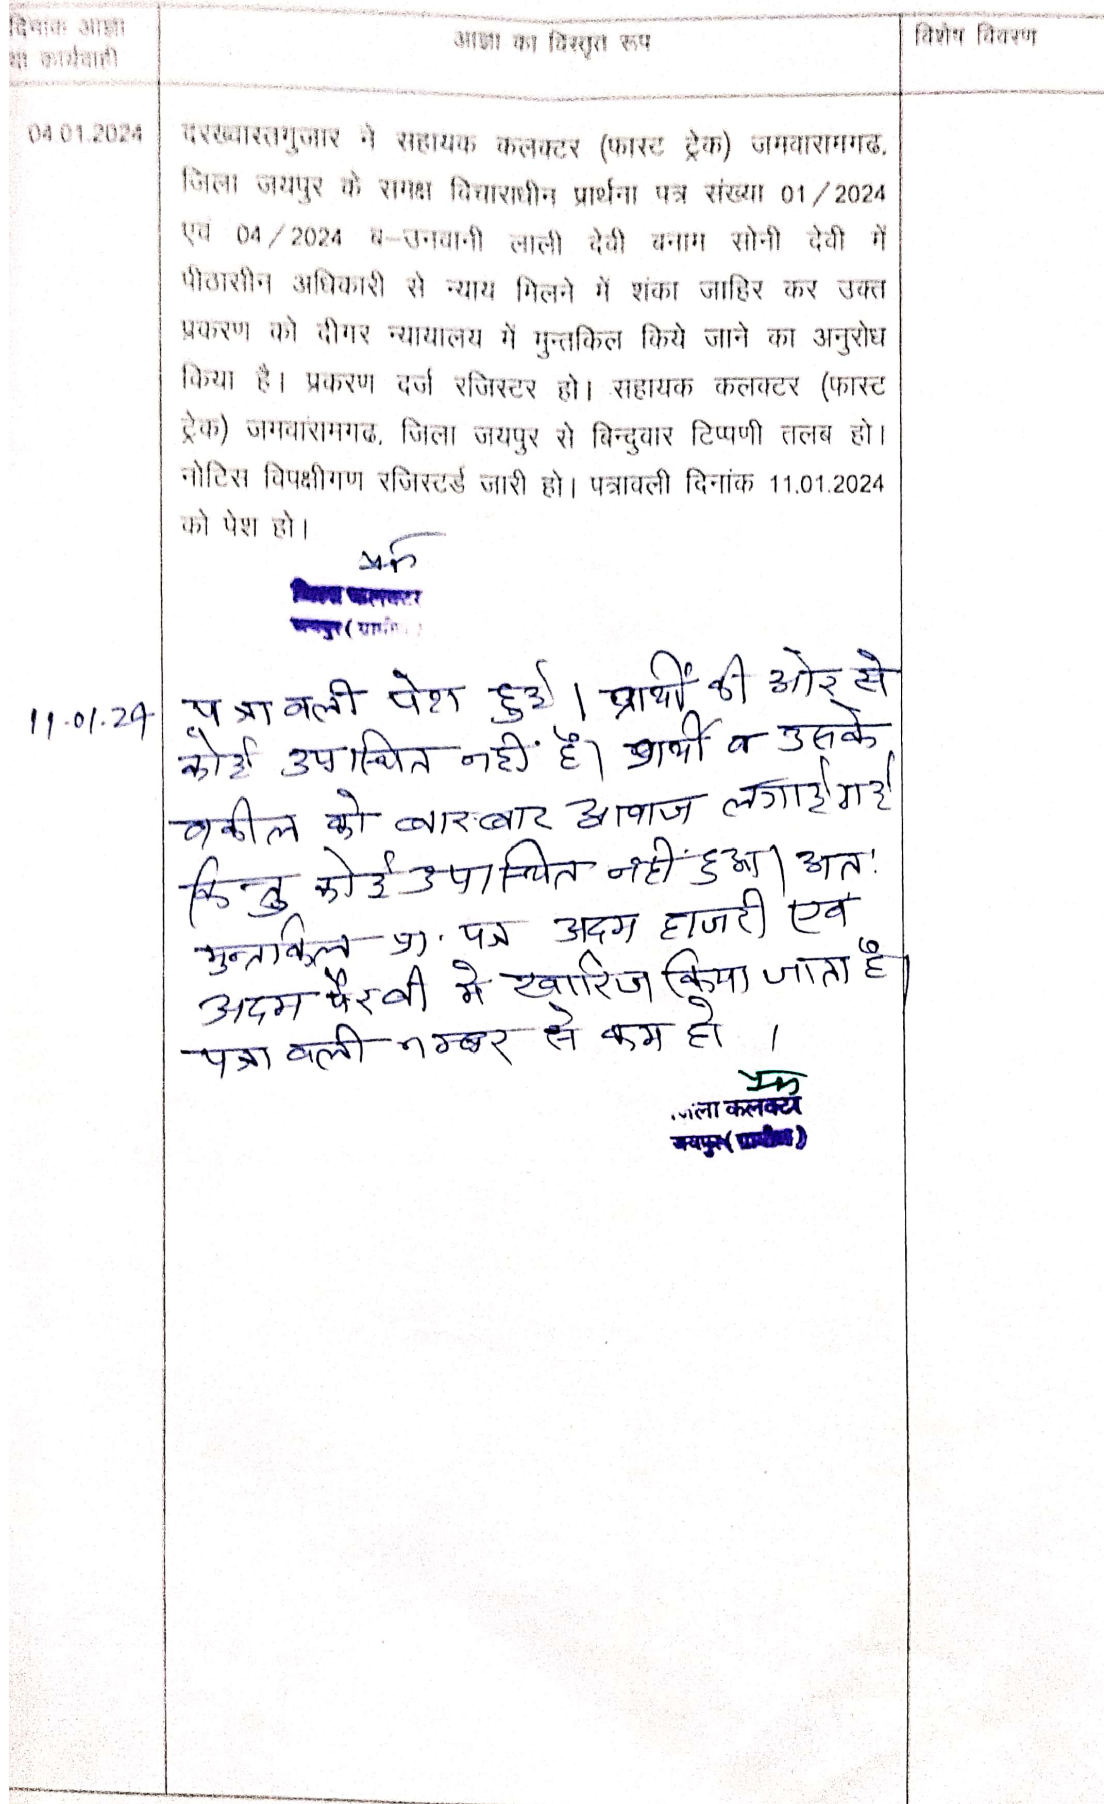 दिनांक आज्ञा
या कार्यवाही
आज्ञा का विस्तृत रूप
विशेष विवरण
04.01.2024
दरख्वास्तगुजार ने सहायक कलक्टर (फास्ट ट्रेक) जमवारामगढ,
जिला जयपुर के समक्ष विचाराधीन प्रार्थना पत्र संख्या 01/2024
एवं 04/2024 ब-उनवानी लाली देवी बनाम सोनी देवी में
पीठासीन अधिकारी से न्याय मिलने में शंका जाहिर कर उक्त
प्रकरण को दीगर न्यायालय में मुन्तकिल किये जाने का अनुरोध
किया है। प्रकरण दर्ज रजिस्टर हो। सहायक कलक्टर (फास्ट
ट्रेक) जमवारामगढ, जिला जयपुर से बिन्दुवार टिप्पणी तलब हो।
नोटिस विपक्षीगण रजिस्टर्ड जारी हो। पत्रावली दिनांक 11.01.2024
को पेश हो।
जिला कलक्टर
जयपुर (ग्रामीण)
11.01.24
पत्रावली पेश हुई। प्रार्थी की ओर से
कोई उपस्थित नहीं है। प्रार्थी व उसके
वकील को बार-बार आवाज लगाई गई
किन्तु कोई उपस्थित नहीं हुआ। अतः
मुन्तकिल प्रा. पत्र अदम हाजरी एवं
अदम पैरवी में खारिज किया जाता है।
पत्रावली नम्बर से कम हो ।
जिला कलक्टर
जयपुर (ग्रामीण)